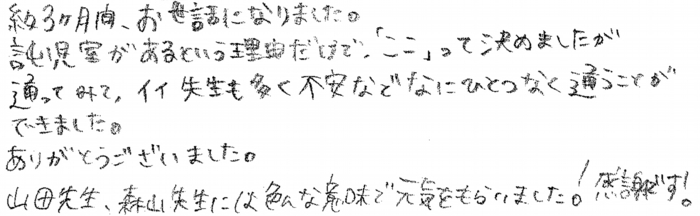 約3ヶ月間、お世話になりました。
託児室があるという理由だけで、「ここ」って決めましたが
通ってみて、イイ先生も多く不安などなにひとつなく通うことが
できました。
ありがとうございました。
山田先生、森山先生には色んな意味で元気をもらいました!感謝です!